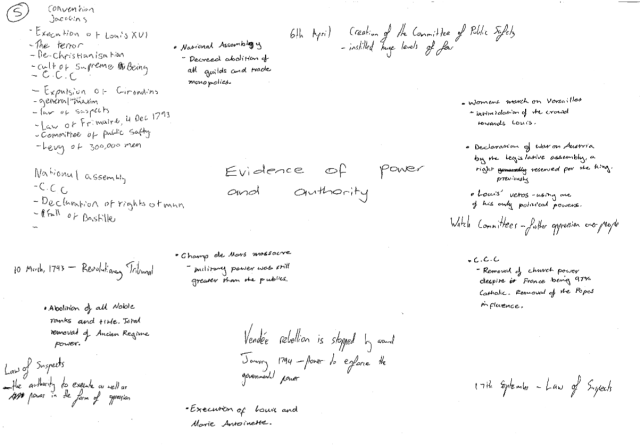 5
Convention
Jacobins
- Execution of Louis XVI
- The terror
- De-Christianisation
- cult of Supreme Being
- C.C.C
- Expulsion of Girondins
- general maximum
- law of suspects
- Law of Frimaire, 4 Dec 1793
- Committee of public safty
- Levy of 300,000 men
National assembly
- C.C.C
- Declaration of rights of man
- Fall of Bastille
-
10 March, 1793 - Revolutionary Tribunal
• Abolition of all Noble
ranks and title. Total
removal of Ancien Regime
power.
Law of Suspects
- the authority to execute as well as
power in the form of oppression
• National Assembly
- Decreed abolition of
all guilds and trade
monopolies.
6th April Creation of the Committee of Public Safety
- instilled huge levels of fear
Evidence of power
and authority
• Champ de Mars massacre
- military power was still
greater than the publics.
Vendée rebellion is stopped by around
January 1794 - power to enforce the
governmental power
• Execution of Louis and
Marie Antoinette.
• Womens march on Versailles
- intimidation of the crowd
towards Louis.
• Declaration of war on Austria
by the Legislative assembly, a
right reserved for the king.
previously
• Louis' vetos - using one
of his only political powers.
Watch Committees - further oppression over people
• C.C.C
- Removal of church power
despite France being 97%
Catholic. Removal of the Popes
influence.
17th September - Law of Suspects